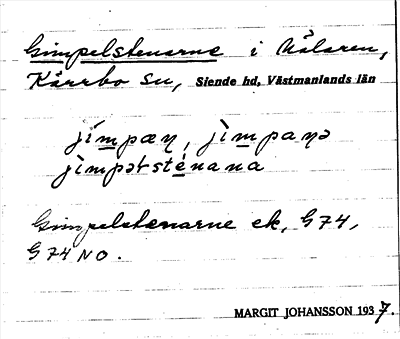 Gimpelstenarne i Mälaren,
Kärrbo sn, Siende hd, Västmanlands län
jímpæn, jìmpanə
jìmpəɫsténana
Gimpelstenarne ek, G74,
G74 NO.
MARGIT JOHANSSON 1937.